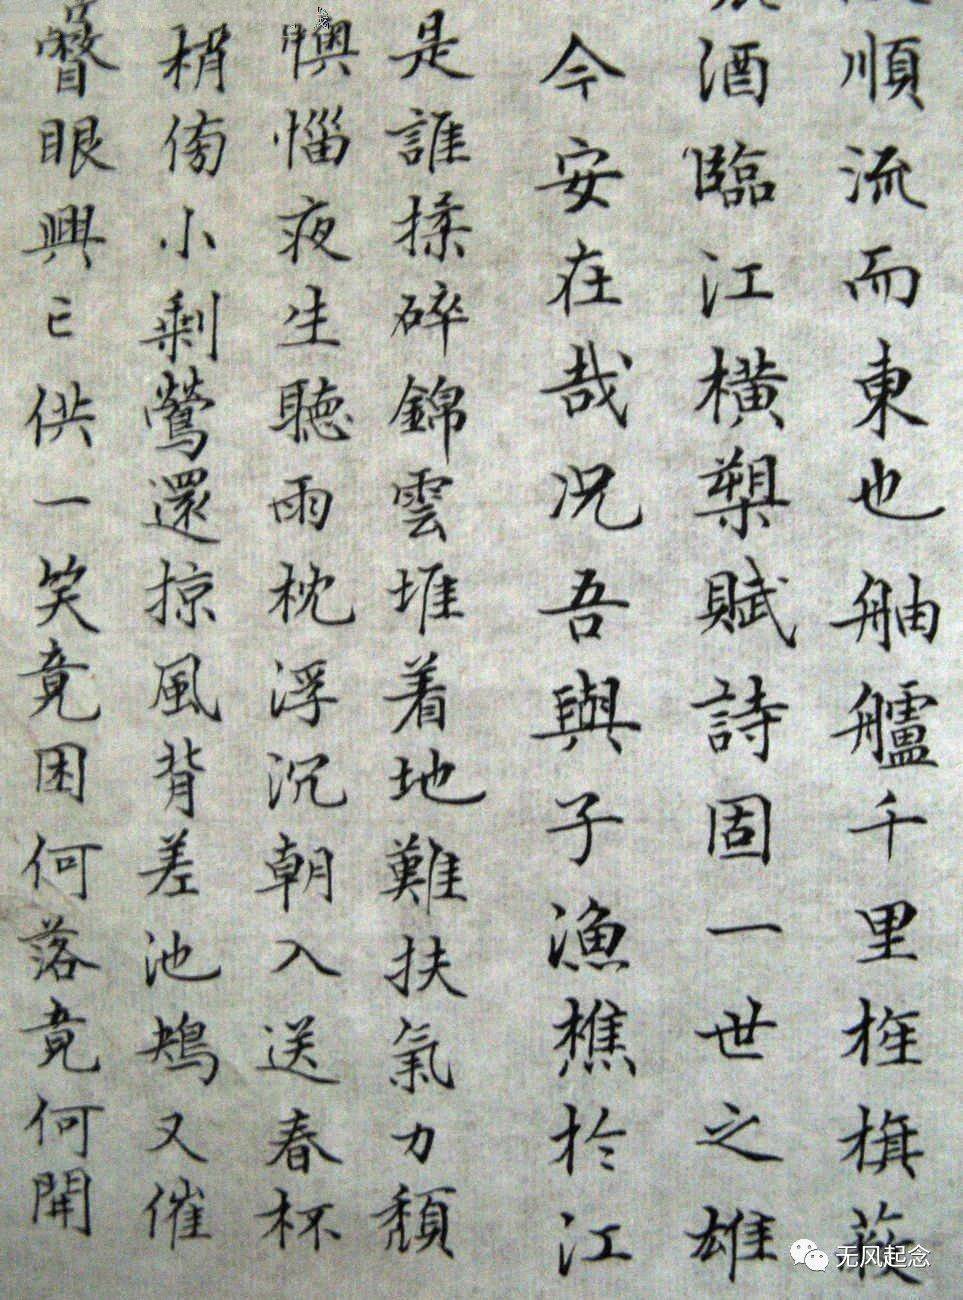 順流而東也舳艫千里旌旗蔽
酒臨江橫槊賦詩固一世之雄
今安在哉況吾與子漁樵於江
是誰揉碎錦雲堆着地難扶氣力頹
懊惱夜生聽雨枕浮沉朝入送春杯
梢傍小剩鶯還掠風背差池鴂又催
瞥眼興已供一笑竟困何落竟何開
无风起念